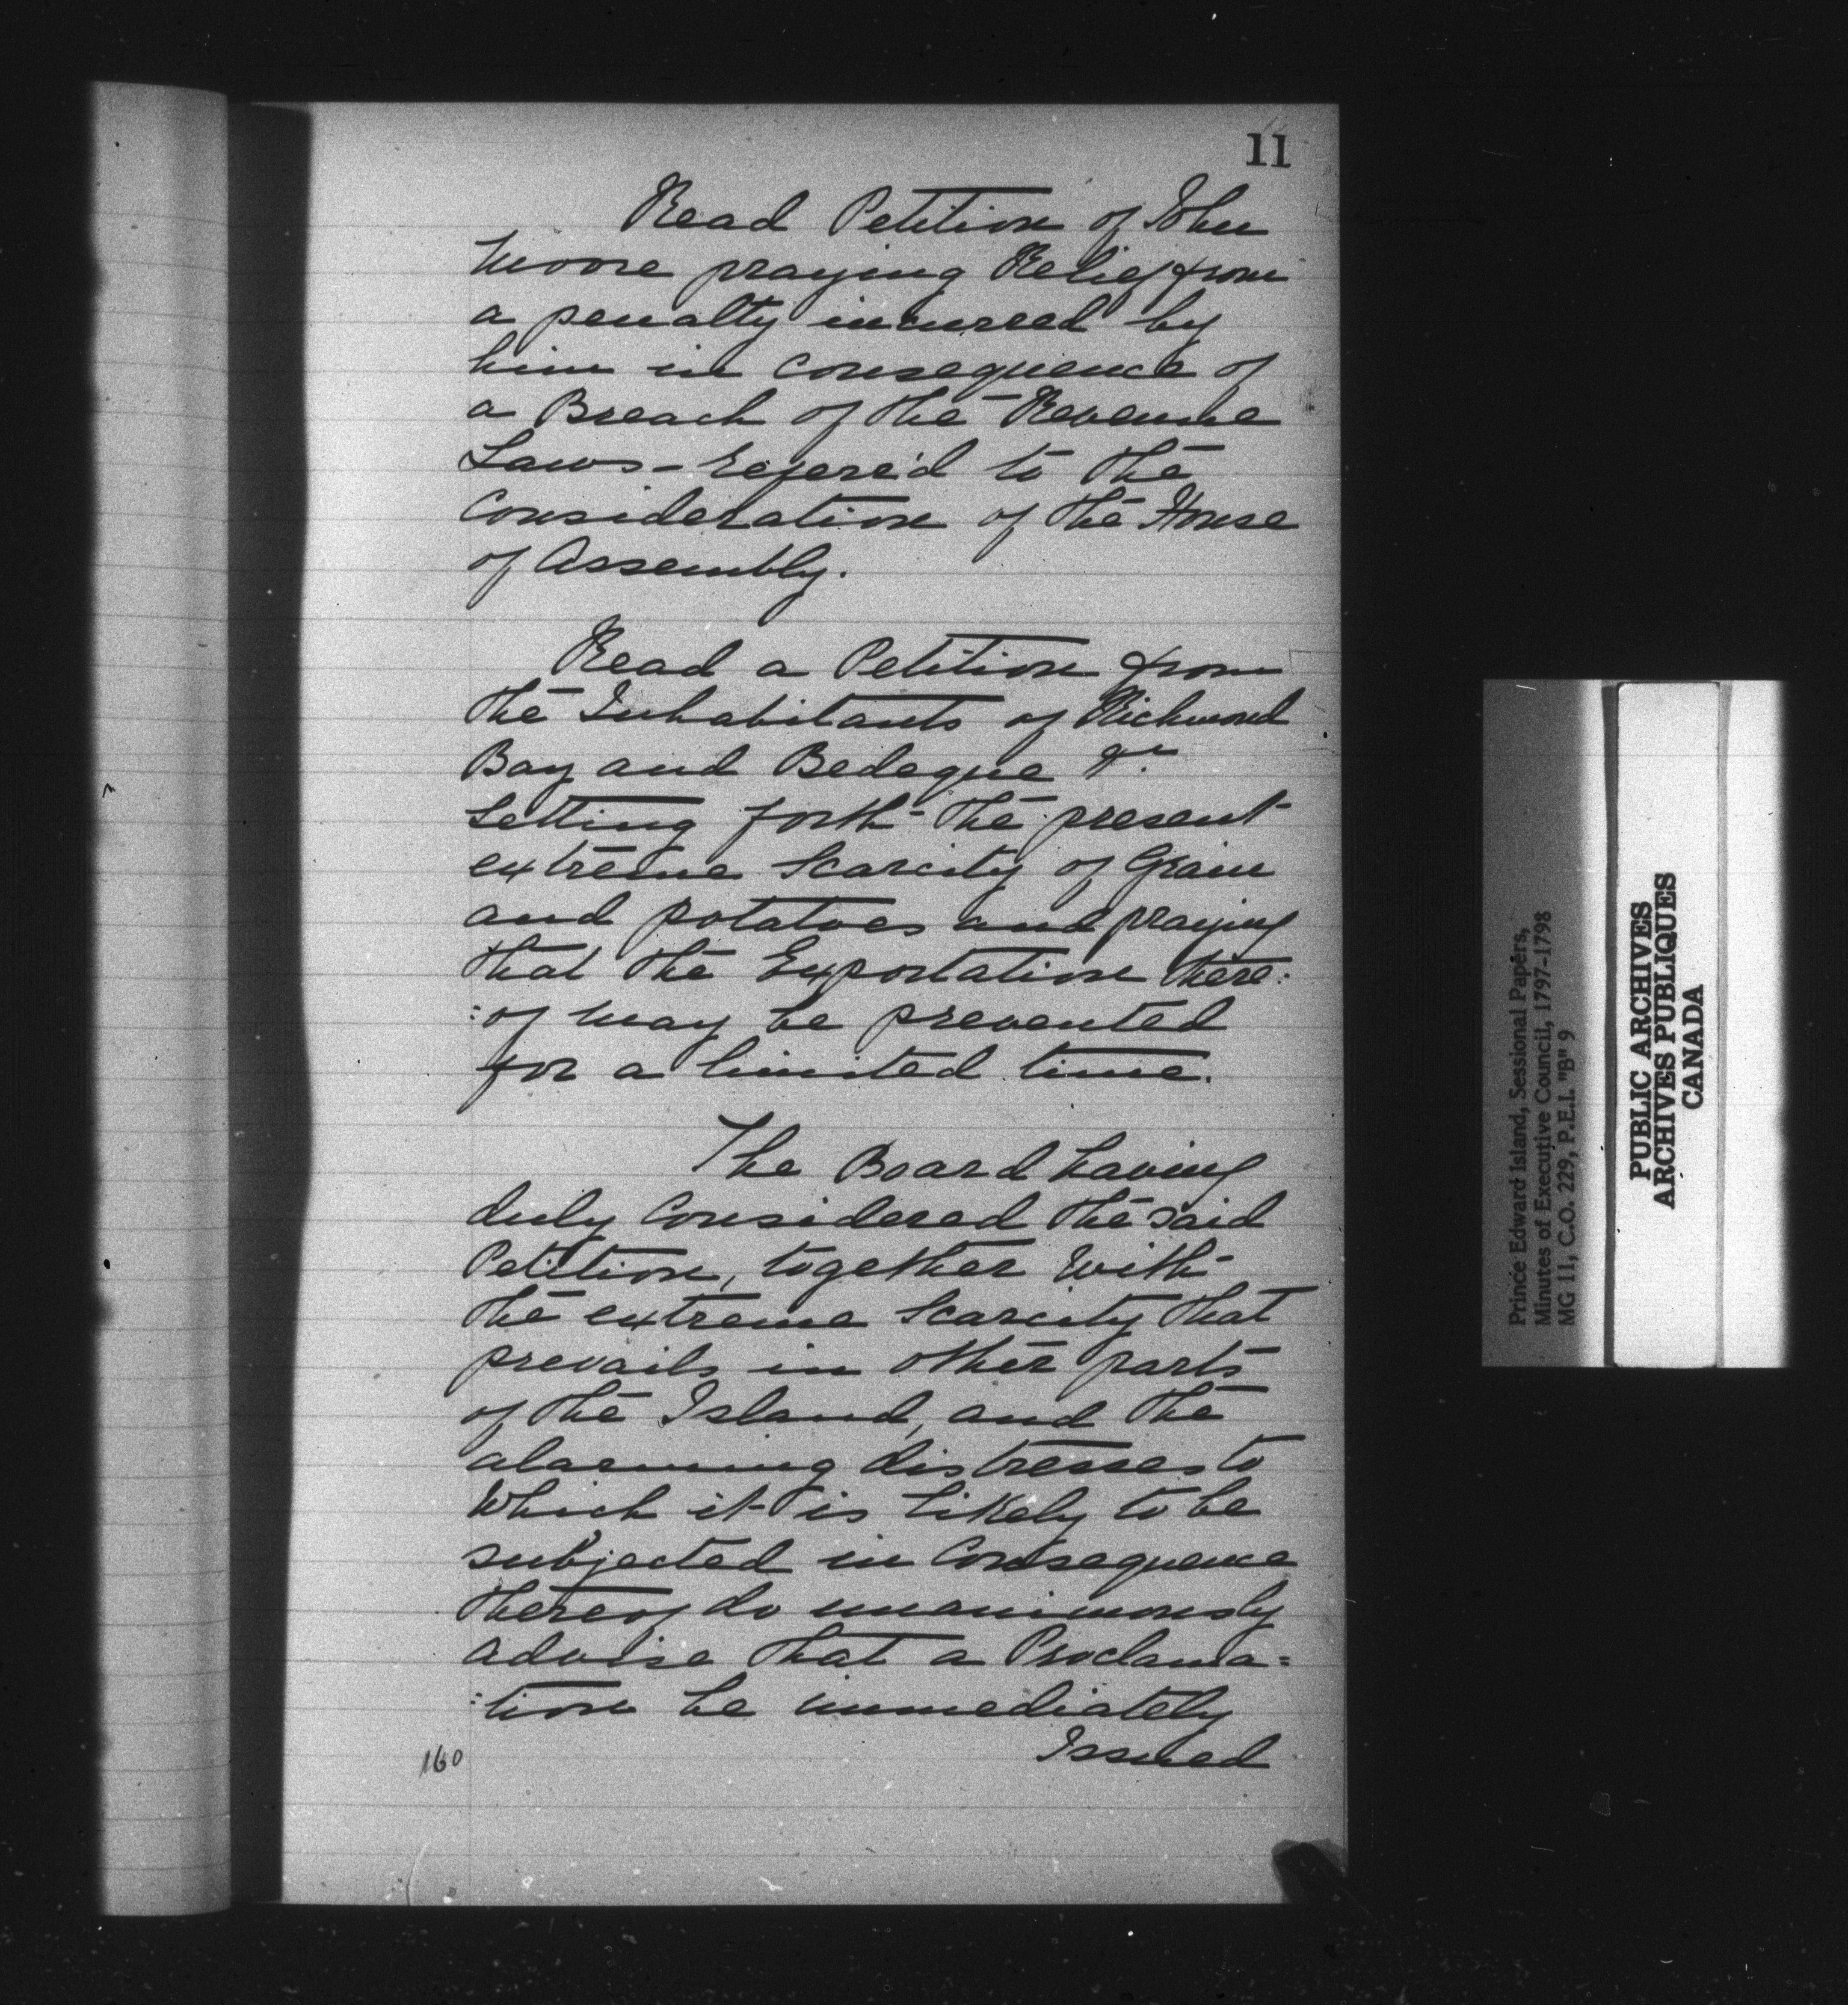 11
Read Petition of John
Moore praying Relief from
a penalty incurred by
him in consequence of
a Breach of the Revenue
Laws - refere'd to the
Consideration of the House
of Assembly.
Read a Petition from
the Inhabitants of Richmond
Bay and Bedeque &c.
Setting forth the present
extreme Scarcity of Grain
and potatoes and praying
that the Exportation there:
:of may be prevented
for a limited time.
The Board having
duly Considered the said
Petition, together with
the extreme Scarcity that
prevails in other parts
of the Island, and the
alarming distresses to
which it is likely to be
subjected in Consequence
thereof do unanimously
advise that a Proclama=
:tion be immediately
Issued
160
Prince Edward Island, Sessional Papers,
Minutes of Executive Council, 1797-1798
MG 11, C.O. 229, P.E.I. "B" 9
PUBLIC ARCHIVES
ARCHIVES PUBLIQUES
CANADA